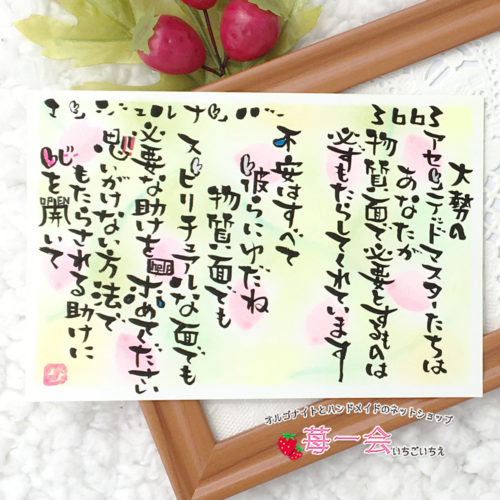 エンジェルナンバー
3663
大勢の
アセンデッドマスターたちは
あなたが
物質面で必要とするものは
必ずもたらしてくれています
不安はすべて
彼らにゆだね
物質面でも
スピリチュアルな面でも
必要な助けを求めてください
思いがけない方法で
もたらされる助けに
心を開いて
OPEN
オルゴナイトとハンドメイドのネットショップ
苺一会 いちごいちえ